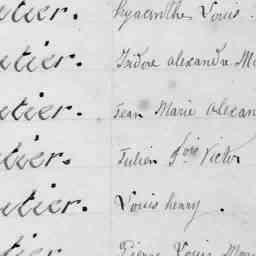 utier. Hyacinthe Louis.
utier. Isidore Alexandre M
utier. Jean Marie Alexan
utier. Julien fois Victor
utier. Louis henry.
utier. Pierre Louis Mar